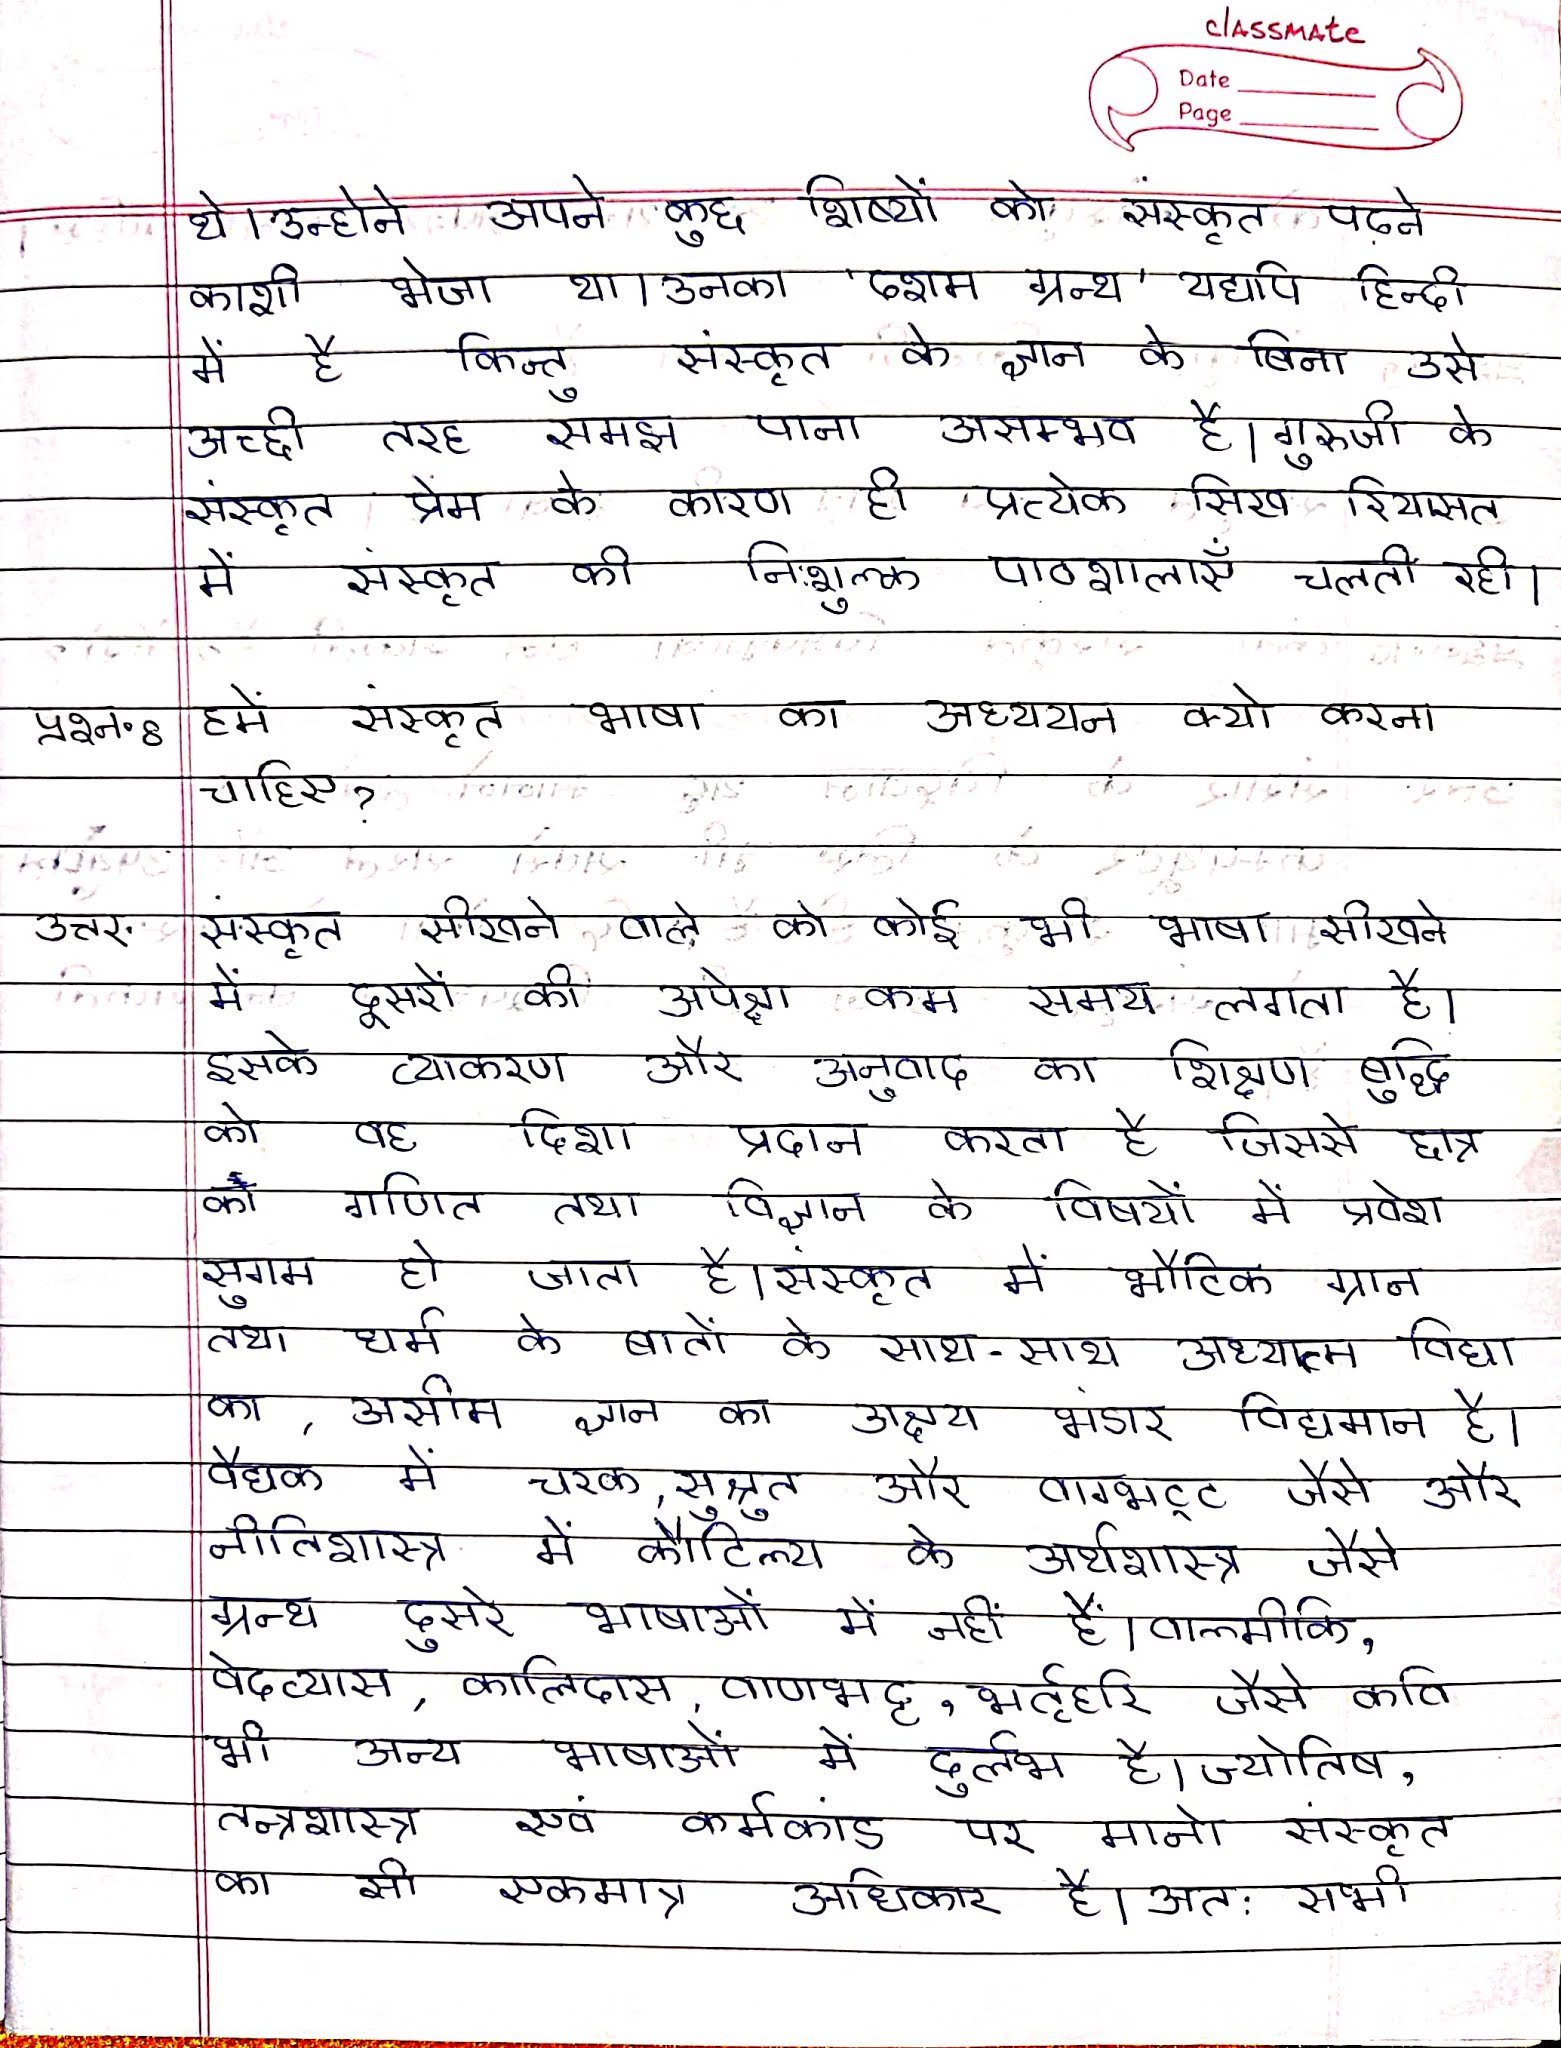 classmate
Date
Page
थे। उन्होने अपने कुछ शिष्यों को संस्कृत पढ़ने
काशी भेजा था। उनका 'दशम ग्रन्थ' यद्यपि हिन्दी
में है किन्तु संस्कृत के ज्ञान के बिना उसे
अच्छी तरह समझ पाना असम्भव है। गुरुजी के
संस्कृत प्रेम के कारण ही प्रत्येक सिख रियासत
में संस्कृत की निःशुल्क पाठशालाएँ चलती रही।
प्रश्न.8 हमें संस्कृत भाषा का अध्ययन क्यो करना
चाहिए?
उत्तर. संस्कृत सीखने वाले को कोई भी भाषा सीखने
में दूसरों की अपेक्षा कम समय लगता है।
इसके व्याकरण और अनुवाद का शिक्षण बुद्धि
को वह दिशा प्रदान करता है जिससे छात्र
को गणित तथा विज्ञान के विषयों में प्रवेश
सुगम हो जाता है। संस्कृत में भौटिक ग्रान
तथा धर्म के बातों के साथ-साथ अध्यात्म विद्या
का, असीम ज्ञान का अक्षय भंडार विद्यमान है।
वैद्यक में चरक, सुश्रुत और वाग्भट्ट जैसे और
नीतिशास्त्र में कौटिल्य के अर्थशास्त्र जैसे
ग्रन्थ दुसरे भाषाओं में नहीं हैं। वाल्मीकि,
वेदव्यास, कालिदास, वाणभट्ट, भर्तृहरि जैसे कवि
भी अन्य भाषाओं में दुर्लभ है। ज्योतिष,
तन्त्रशास्त्र एवं कर्मकांड पर मानो संस्कृत
का सी एकमात्र अधिकार है। अतः सभी